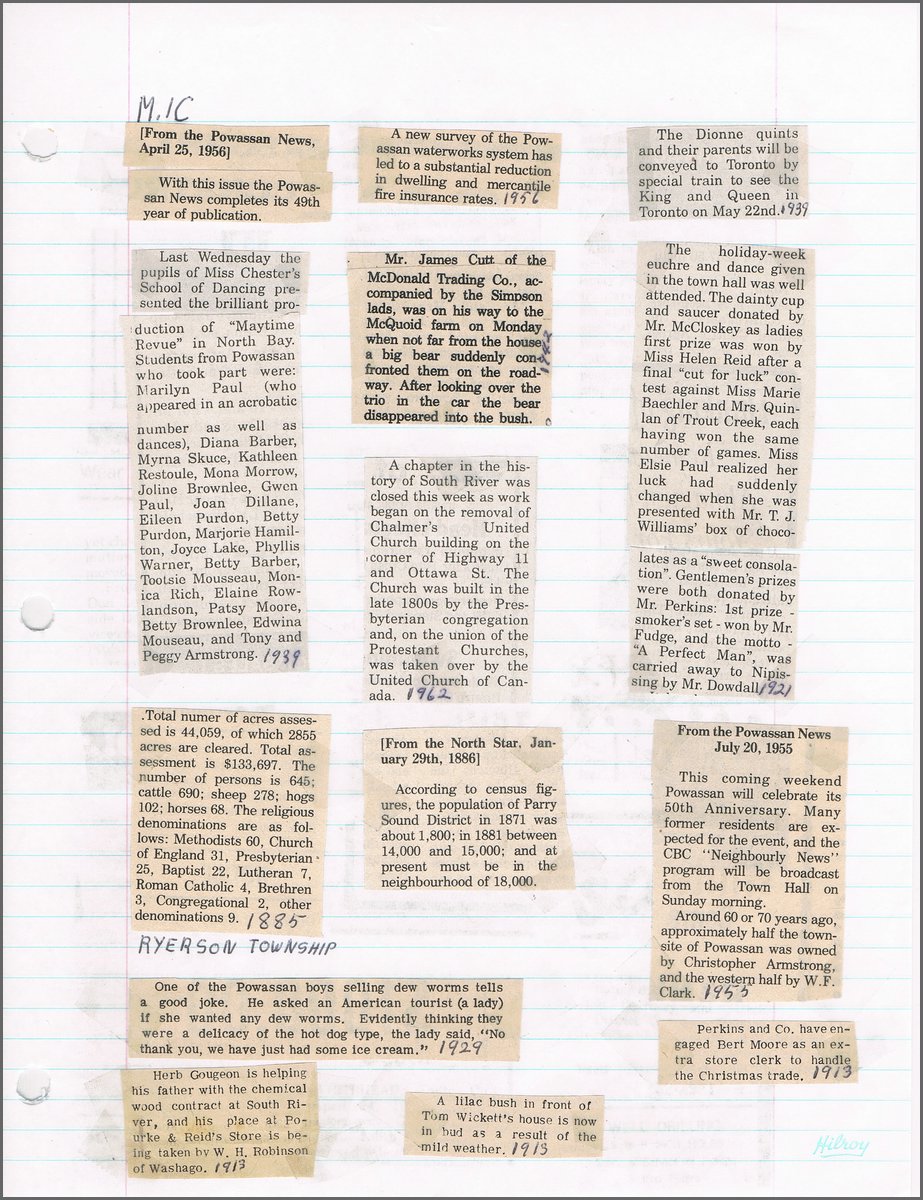 M.IC
[From the Powassan News,
April 25, 1956]
With this issue the Powas-
san News completes its 49th
year of publication.
Last Wednesday the
pupils of Miss Chester's
School of Dancing pre-
sented the brilliant pro-
duction of "Maytime
Revue" in North Bay.
Students from Powassan
who took part were:
Marilyn Paul (who
appeared in an acrobatic
number as well as
dances), Diana Barber,
Myrna Skuce, Kathleen
Restoule, Mona Morrow,
Joline Brownlee, Gwen
Paul, Joan Dillane,
Eileen Purdon, Betty
Purdon, Marjorie Hamil-
ton, Joyce Lake, Phyllis
Warner, Betty Barber,
Tootsie Mousseau, Mon-
ica Rich, Elaine Row-
landson, Patsy Moore,
Betty Brownlee, Edwina
Mouseau, and Tony and
Peggy Armstrong. 1939
.Total numer of acres asses-
sed is 44,059, of which 2855
acres are cleared. Total as-
sessment is $133,697. The
number of persons is 645;
cattle 690; sheep 278; hogs
102; horses 68. The religious
denominations are as fol-
lows: Methodists 60, Church
of England 31, Presbyterian
25, Baptist 22, Lutheran 7,
Roman Catholic 4, Brethren
3, Congregational 2, other
denominations 9. 1885
RYERSON TOWNSHIP
A new survey of the Pow-
assan waterworks system has
led to a substantial reduction
in dwelling and mercantile
fire insurance rates. 1956
Mr. James Cutt of the
McDonald Trading Co., ac-
companied by the Simpson
lads, was on his way to the
McQuoid farm on Monday
when not far from the house
a big bear suddenly con-
fronted them on the road-
way. After looking over the
trio in the car the bear
disappeared into the bush.
A chapter in the his-
tory of South River was
closed this week as work
began on the removal of
Chalmer's United
Church building on the
corner of Highway 11
and Ottawa St. The
Church was built in the
late 1800s by the Pres-
byterian congregation
and, on the union of the
Protestant Churches,
was taken over by the
United Church of Can-
ada. 1962
[From the North Star, Jan-
uary 29th, 1886]
According to census fig-
ures, the population of Parry
Sound District in 1871 was
about 1,800; in 1881 between
14,000 and 15,000; and at
present must be in the
neighbourhood of 18,000.
The Dionne quints
and their parents will be
conveyed to Toronto by
special train to see the
King and Queen in
Toronto on May 22nd. 1939
The holiday-week
euchre and dance given
in the town hall was well
attended. The dainty cup
and saucer donated by
Mr. McCloskey as ladies
first prize was won by
Miss Helen Reid after a
final "cut for luck" con-
test against Miss Marie
Baechler and Mrs. Quin-
lan of Trout Creek, each
having won the same
number of games. Miss
Elsie Paul realized her
luck had suddenly
changed when she was
presented with Mr. T. J.
Williams' box of choco-
lates as a "sweet consola-
tion". Gentlemen's prizes
were both donated by
Mr. Perkins: 1st prize -
smoker's set - won by Mr.
Fudge, and the motto -
"A Perfect Man", was
carried away to Nipis-
sing by Mr. Dowdall. 1921
From the Powassan News
July 20, 1955
This coming weekend
Powassan will celebrate its
50th Anniversary. Many
former residents are ex-
pected for the event, and the
CBC "Neighbourly News"
program will be broadcast
from the Town Hall on
Sunday morning.
Around 60 or 70 years ago,
approximately half the town-
site of Powassan was owned
by Christopher Armstrong,
and the western half by W.F.
Clark. 1955
One of the Powassan boys selling dew worms tells
a good joke. He asked an American tourist (a lady)
if she wanted any dew worms. Evidently thinking they
were a delicacy of the hot dog type, the lady said, "No
thank you, we have just had some ice cream." 1929
Herb Gougeon is helping
his father with the chemical
wood contract at South Ri-
ver, and his place at Po-
urke & Reid's Store is be-
ing taken by W. H. Robinson
of Washago. 1913
A lilac bush in front of
Tom Wickett's house is now
in bud as a result of the
mild weather. 1913
Perkins and Co. have en-
gaged Bert Moore as an ex-
tra store clerk to handle
the Christmas trade. 1913
Hilroy